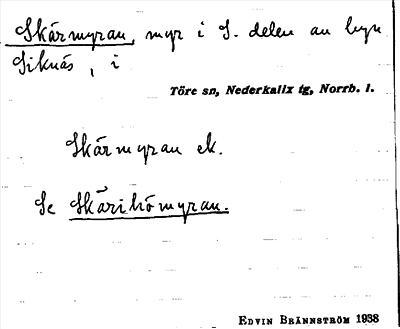 Skärmyran, myr i S. delen av byn
Siknäs, i
Töre sn, Nederkalix tg, Norrb. l.
Skärmyran ek.
Se Skäriträmyran.
EDVIN BRÄNNSTRÖM 1938